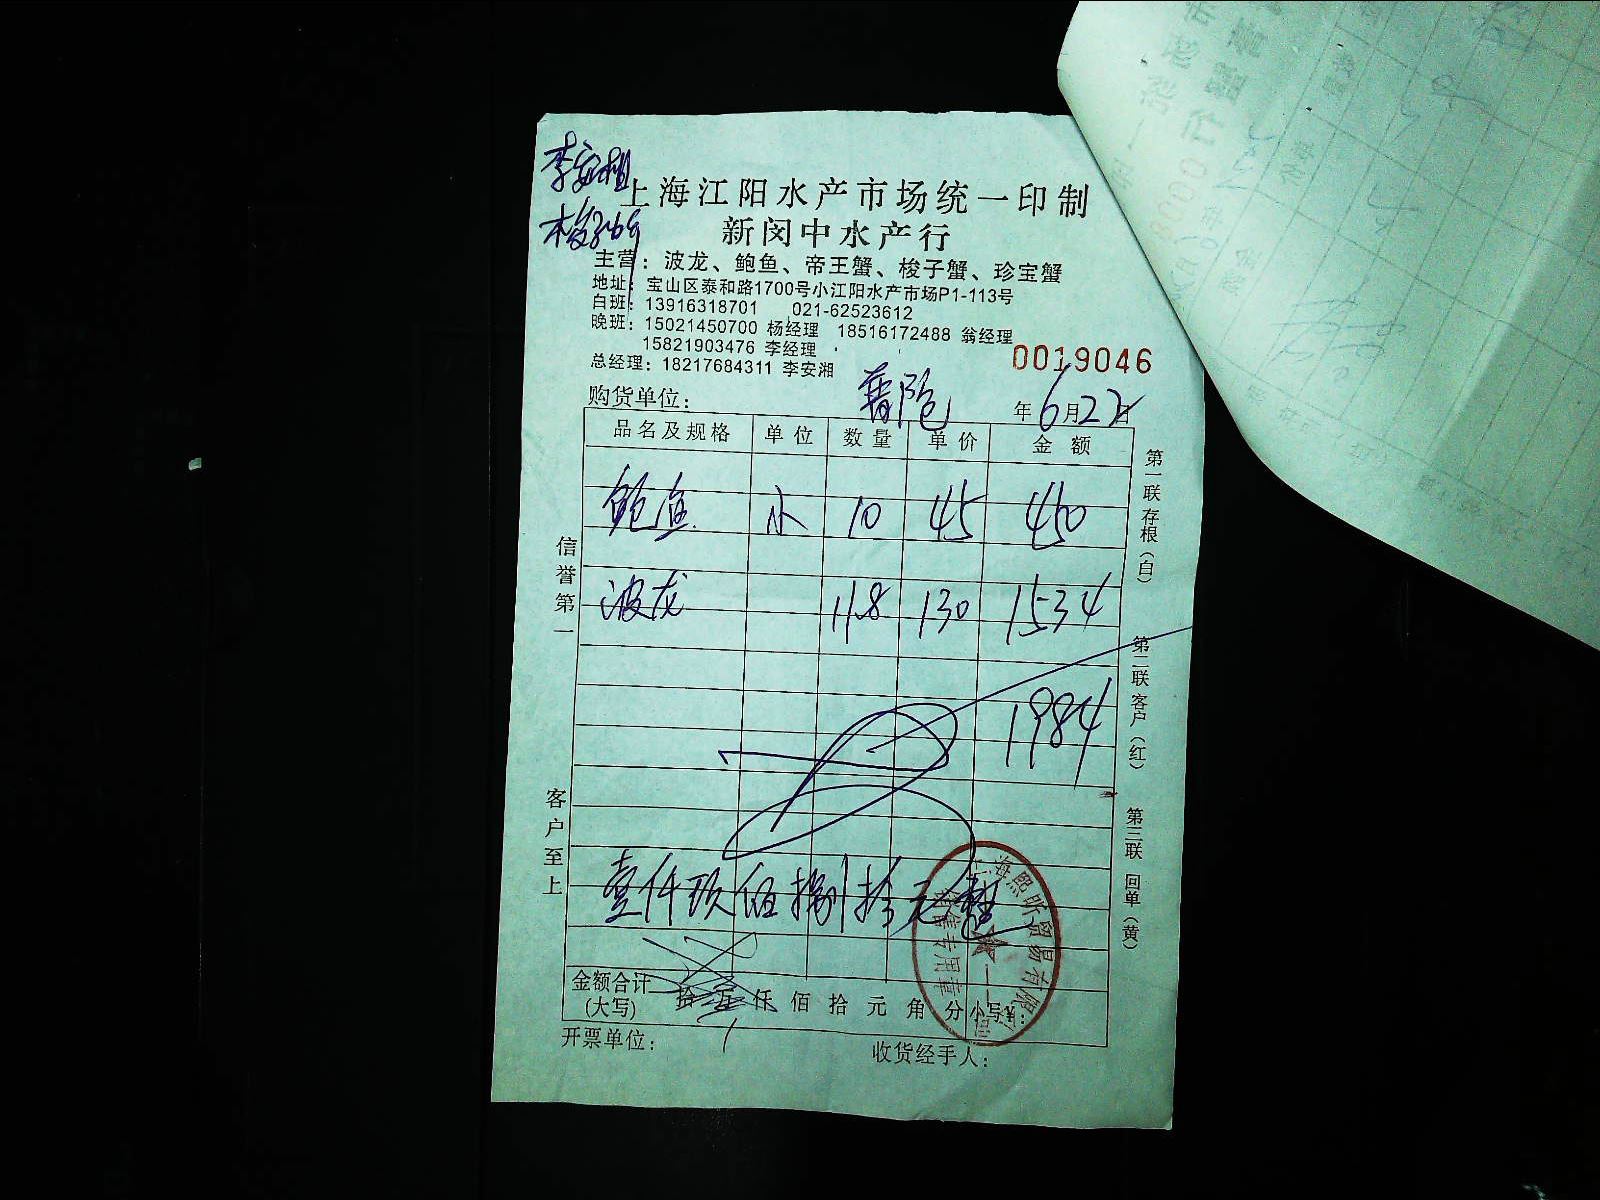 李安湘
上海江阳水产市场统一印制
新闵中水产行
主营：波龙、鲍鱼、帝王蟹、梭子蟹、珍宝蟹
地址：宝山区泰和路1700号小江阳水产市场P1-113号
白班：13916318701 021-62523612
晚班：15021450700 杨经理 18516172488 翁经理
15821903476 李经理
总经理：18217684311 李安湘
0019046
购货单位： 普陀 年6月22日
品名及规格 单位 数量 单价 金额
鲍鱼 小 10 45 450
波龙 11.8 130 1534
1984
壹仟玖佰捌拾元整
金额合计
(大写) 拾万仟佰拾元角分 小写¥：
开票单位： 收货经手人：
信誉第一
客户至上
第一联存根（白）
第二联客户（红）
第三联回单（黄）
销售专用章